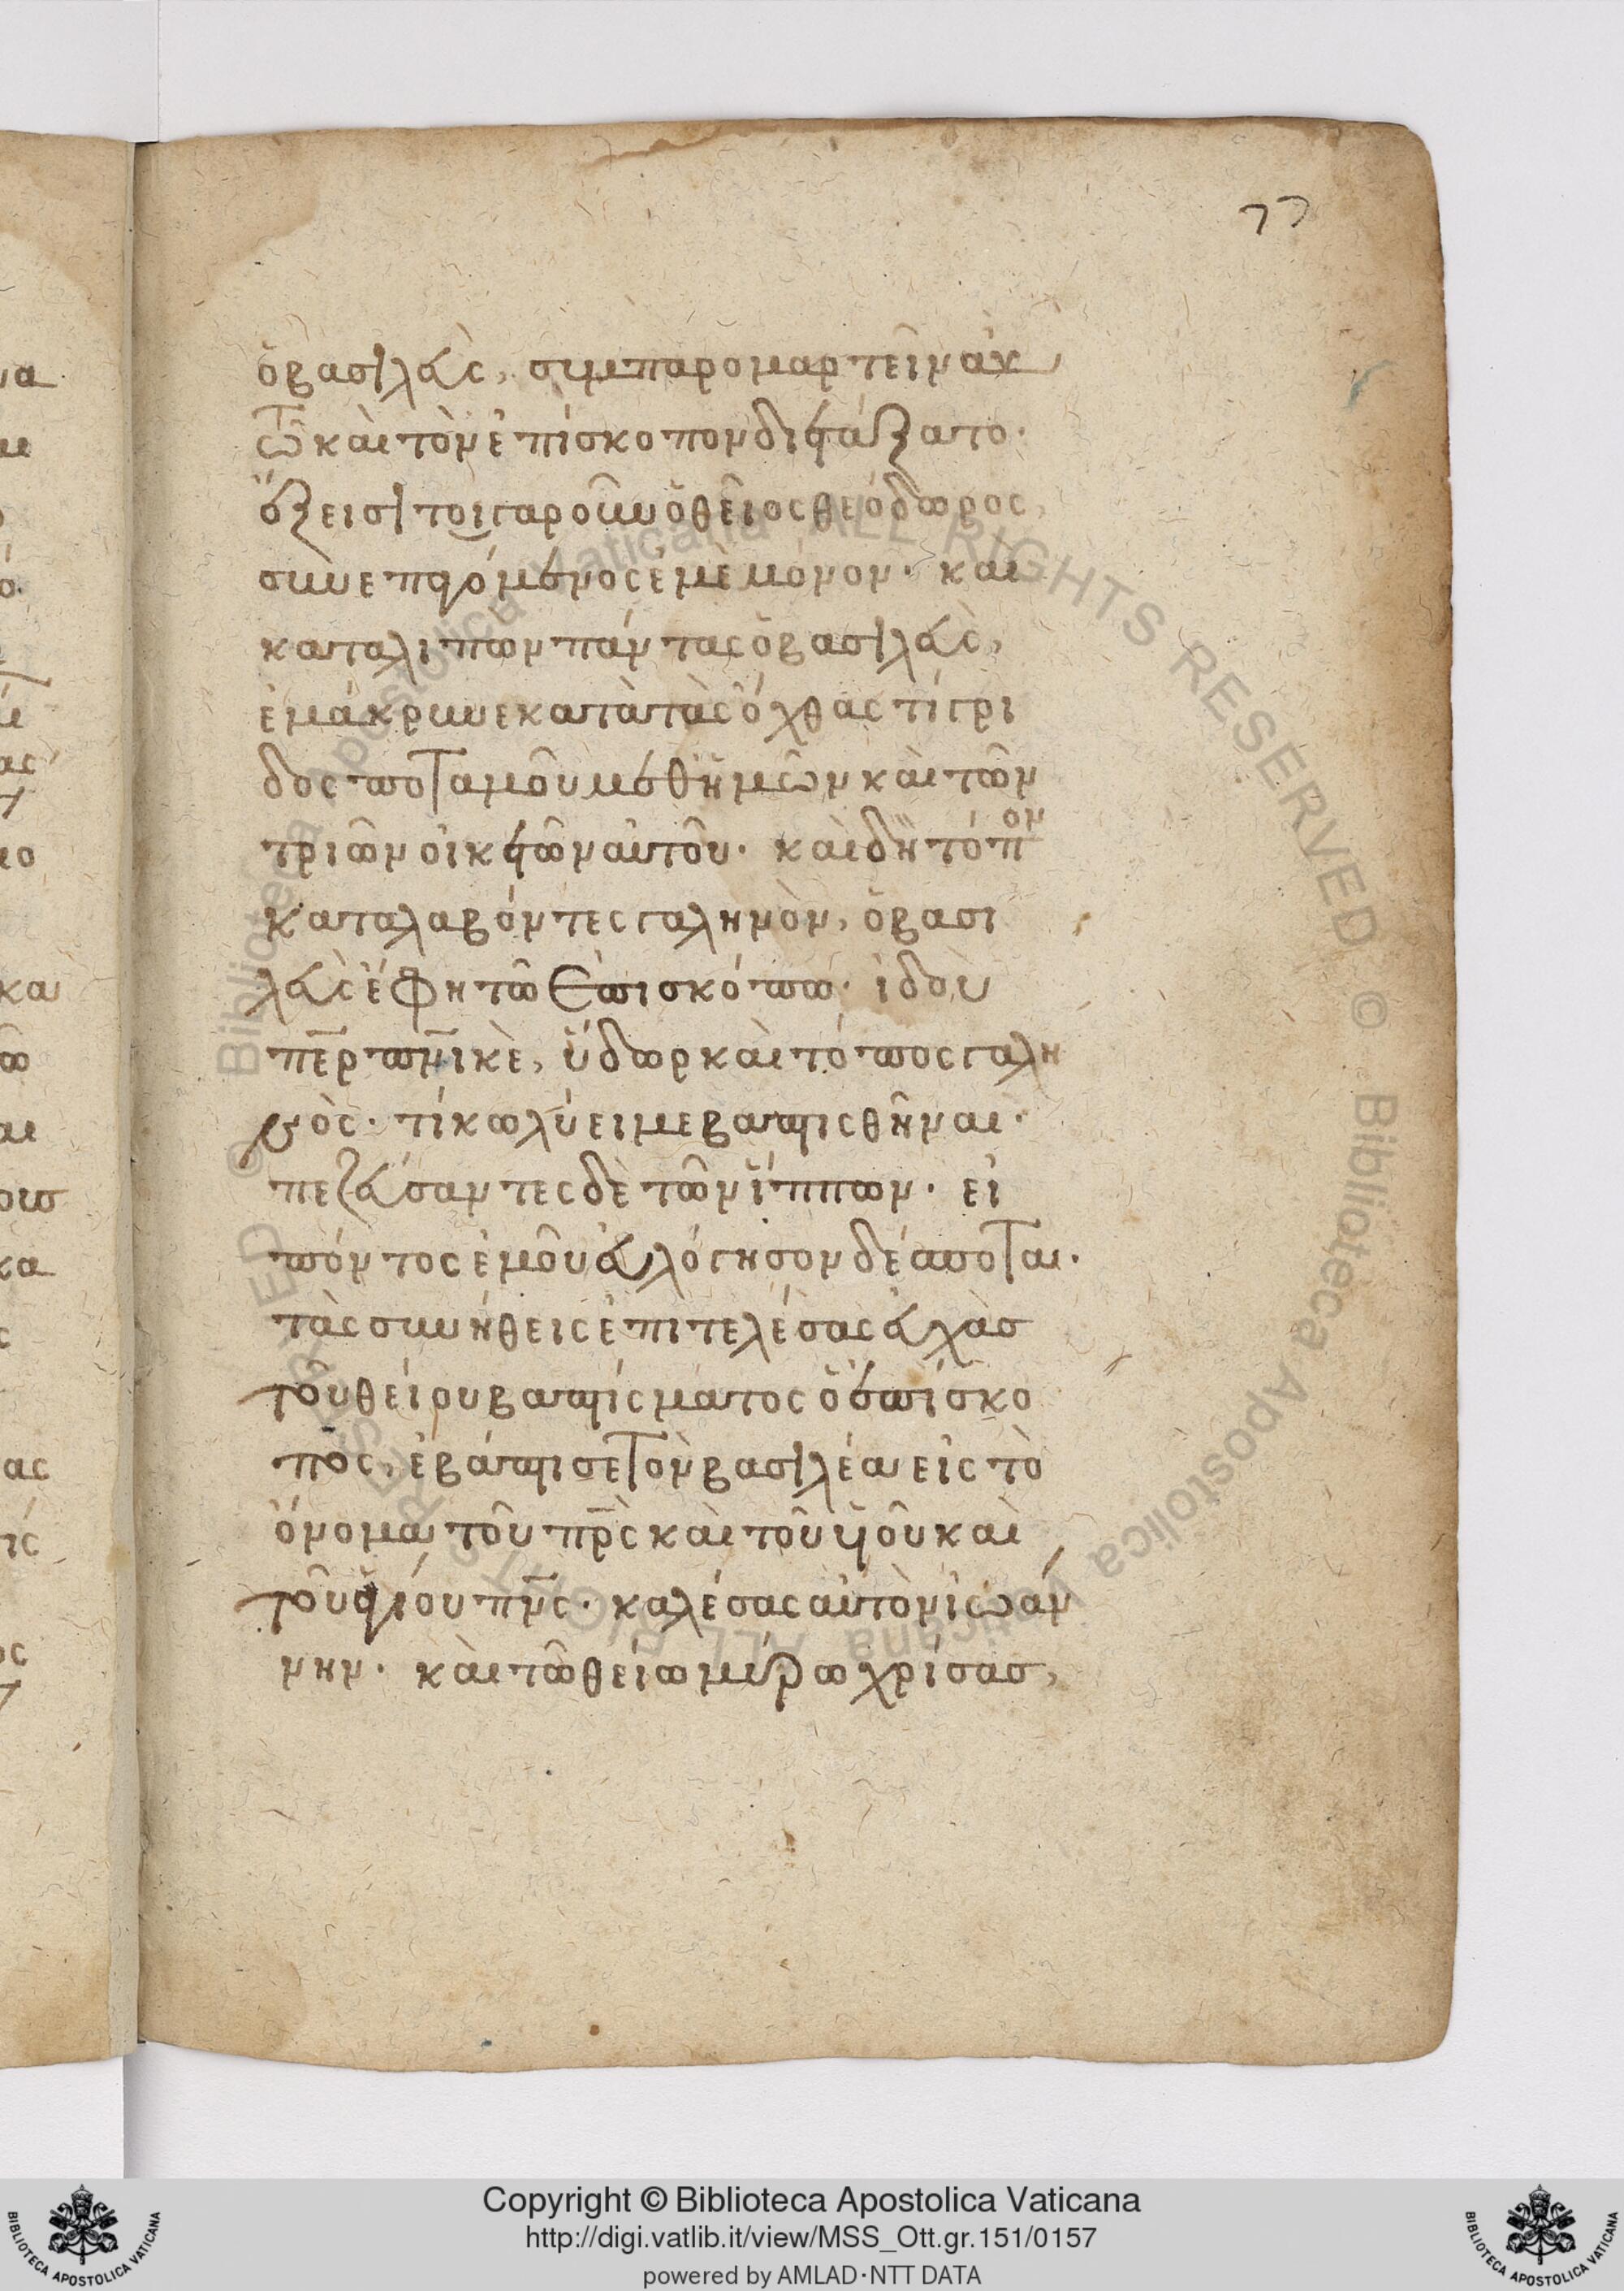 77
ὁ βασιλεὺς, συμπαρομαρτεῖν αὐ
τῶ καὶ τὸν ἐπίσκοπον διετάξατο·
ἔξεισι τοιγαροῦν ὁ θεῖος θεόδωρος,
συνεπαγόμενος ἐμὲ μόνον· καὶ
καταλιπων πάντας ὁ βασιλεὺς,
ἐμάκρυνε κατὰ τὰς ὄχθας τίγρι
δος ποταμοῦ μεθ ἡμῶν καὶ τῶν
τριῶν οἰκετῶν αὐτοῦ· καὶ δὴ τόπον
καταλαβόντες γαληνὸν, ὁ βασι
λεὺς ἔφη τῶ ἐπισκόπω· ἰδοὺ
περ πνικὲ, ὕδωρ καὶ τόπος γαλη
νὸς· τί κωλύει με βαπτισθῆναι·
πεζεύσαντες δὲ τῶν ἵππων· εἰ
πόντος ἐμοῦ εὐλόγησον δέσποται·
τὰς συνήθεις ἐπιτελέσας εὐχὰς
τοῦ θείου βαπτίσματος ὁ ἐπίσκο
πος, ἐβάπτισε τὸν βασιλέα εἰς τὸ
ὄνομα τοῦ πρς καὶ τοῦ υἱοῦ καὶ
τοῦ ἁγίου πνς· καλέσας αὐτὸν ἰωάν
νην· καὶ τῶ θείω μύρω χρίσας,
Copyright © Biblioteca Apostolica Vaticana
http://digi.vatlib.it/view/MSS_Ott.gr.151/0157
powered by AMLAD·NTT DATA